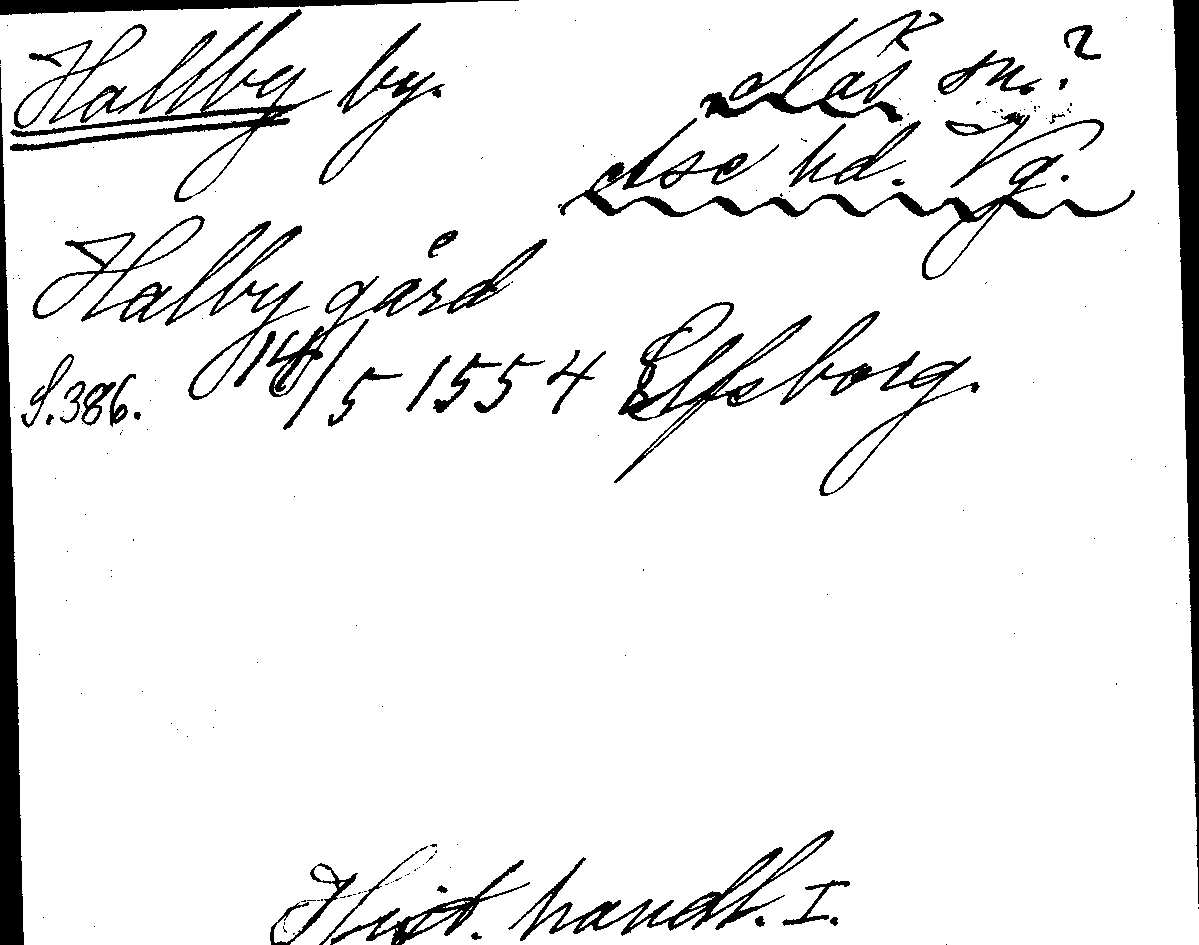 Hallby by. Näs sn.?
Åse hd. Vg.
Halby gård
S. 386. 14/5 1554 Elfsborg.
Hist. handl. I.